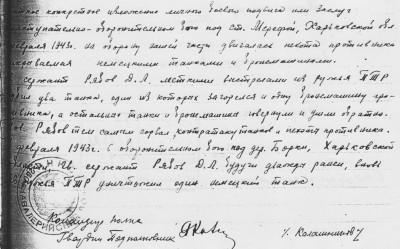 ное конкретное изложение личного боевого подвига или заслуг
ступательно-оборонительном бою под ст. Шередой, Харьковской обл
евраля 1943г. на оборону нашей части двигалась пехота противника
живаемая немецкими танками и бронемашиной.
сержант Рязов Д.А. меткими выстрелами из ружья ПТР
два танка, один из которых загорелся и одну бронемашину про-
вника, а остальные танки и бронемашина повернули и ушли обратно.
ов. Рязов тем самым сорвал контратаку танков и пехоты противника.
февраля 1943г. в оборонительном бою под дер. Борки, Харьковской
сержант Рязов Д.А. будучи дважды ранен, вновь
ружья ПТР уничтожил один немецкий танк.
Командир полка
Гвардии Подполковник